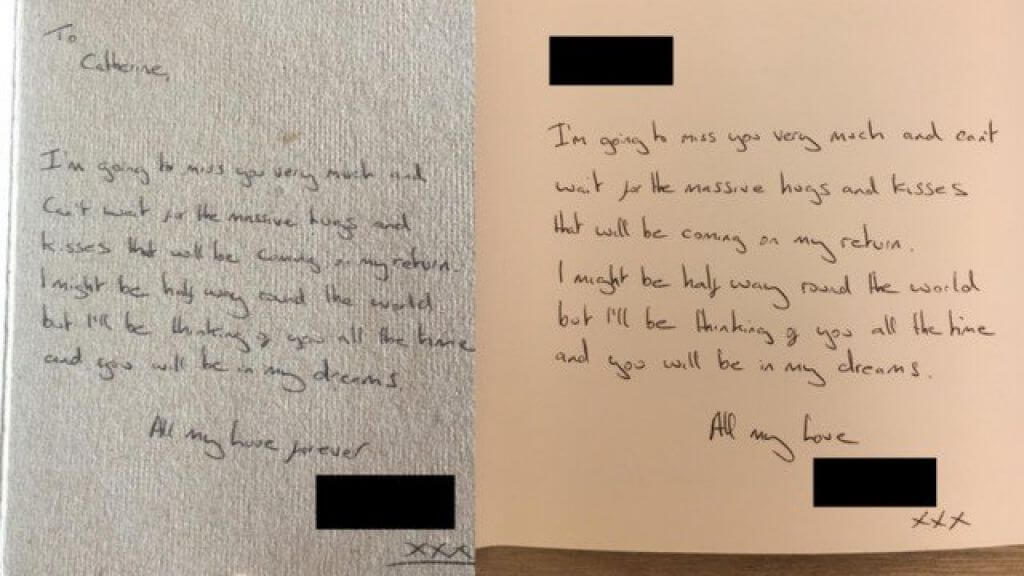 To
Catherine,
I'm going to miss you very much and
Can't wait for the massive hugs and
kisses that will be coming on my return.
I might be half way round the world
but I'll be thinking of you all the time
and you will be in my dreams
All my love forever
xxx
I'm going to miss you very much and can't
wait for the massive hugs and kisses
that will be coming on my return.
I might be half way round the world
but I'll be thinking of you all the time
and you will be in my dreams.
All my love
xxx